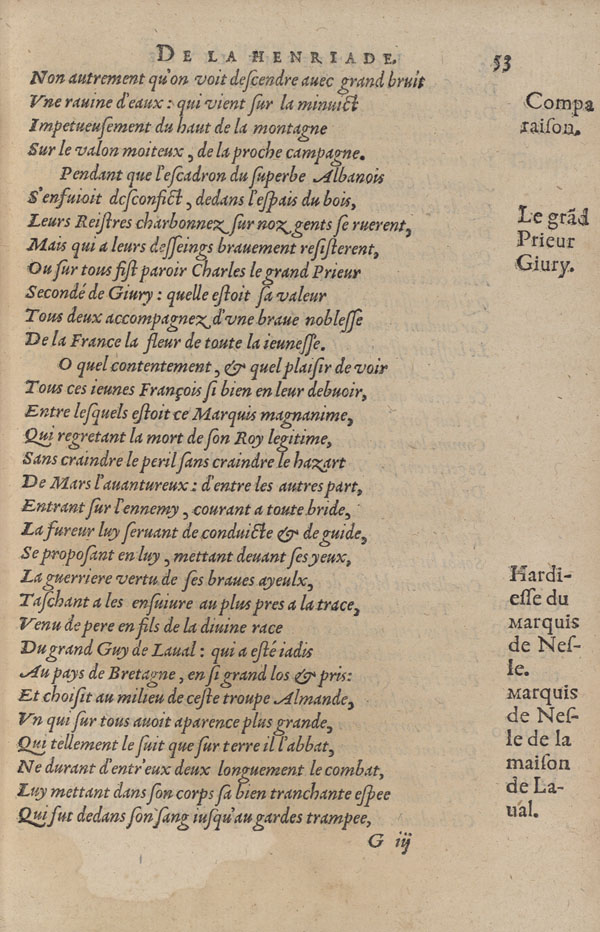 DE LA HENRIADE. 53
Non autrement qu'on voit deſcendre auec grand bruit
Vne rauine d'eaux : qui vient ſur la minuict
Impetueuſement du haut de la montagne
Sur le valon moiteux, de la proche campagne.
Pendant que l'eſcadron du ſuperbe Albanois
S'enfuioit desconfict, dedans l'eſpais du bois,
Leurs Reiſtres charbonnez ſur noz gents ſe ruerent,
Mais qui a leurs deſſeings brauement reſiſterent,
Ou ſur tous fiſt paroir Charles le grand Prieur
Secondé de Giury : quelle eſtoit ſa valeur
Tous deux accompagnez d'vne braue nobleſſe
De la France la fleur de toute la ieuneſſe.
O quel contentement, & quel plaiſir de voir
Tous ces ieunes François ſi bien en leur debuoir,
Entre leſquels eſtoit ce Marquis magnanime,
Qui regretant la mort de ſon Roy legitime,
Sans craindre le peril ſans craindre le hazart
De Mars l'auantureux : d'entre les autres part,
Entrant ſur l'ennemy, courant a toute bride,
La fureur luy ſeruant de conduicte & de guide,
Se propoſant en luy, mettant deuant ſes yeux,
La guerriere vertu de ſes braues ayeulx,
Taſchant a les enſuiure au plus pres a la trace,
Venu de pere en fils de la diuine race
Du grand Guy de Laual : qui a eſté iadis
Au pays de Bretagne, en ſi grand los & pris:
Et choiſit au milieu de ceſte troupe Almande,
Vn qui ſur tous auoit aparence plus grande,
Qui tellement le ſuit que ſur terre il l'abbat,
Ne durant d'entr'eux deux longuement le combat,
Luy mettant dans ſon corps ſa bien tranchante eſpee
Qui fut dedans ſon ſang iuſqu'au gardes trampee,
G iij
Compa
raiſon.
Le grãd
Prieur
Giury.
Hardi-
eſſe du
Marquis
de Neſ-
le.
Marquis
de Neſ-
le de la
maiſon
de La-
ual.